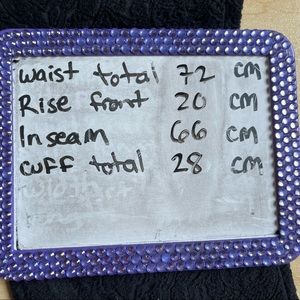 Waist total 72 cm
Rise front 20 cm
Inseam 66 cm
cuff total 28 cm